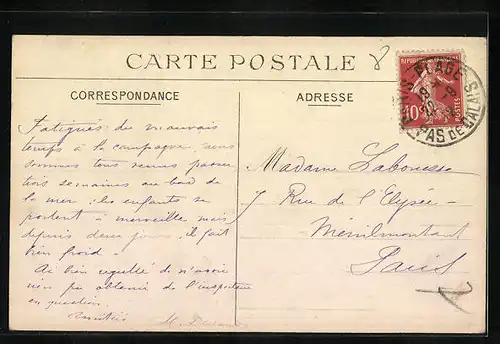 CARTE POSTALE
8
CORRESPONDANCE
ADRESSE
PARIS-PLAGE
PAS DE CALAIS
REPUBLIQUE FRANÇAISE
10
POSTES
Fatigués du mauvais
temps à la campagne, nous
sommes tous venus passer
trois semaines au bord de
la mer : les enfants se
portent à merveille mais
depuis deux jours, il fait
bien froid.
Ai bien regretté de n'avoir
rien pu obtenir de l'inspecteur
en question.
Amitiés
Madame Labousse
7 Rue de l'Elysée-
Ménilmontant
Paris